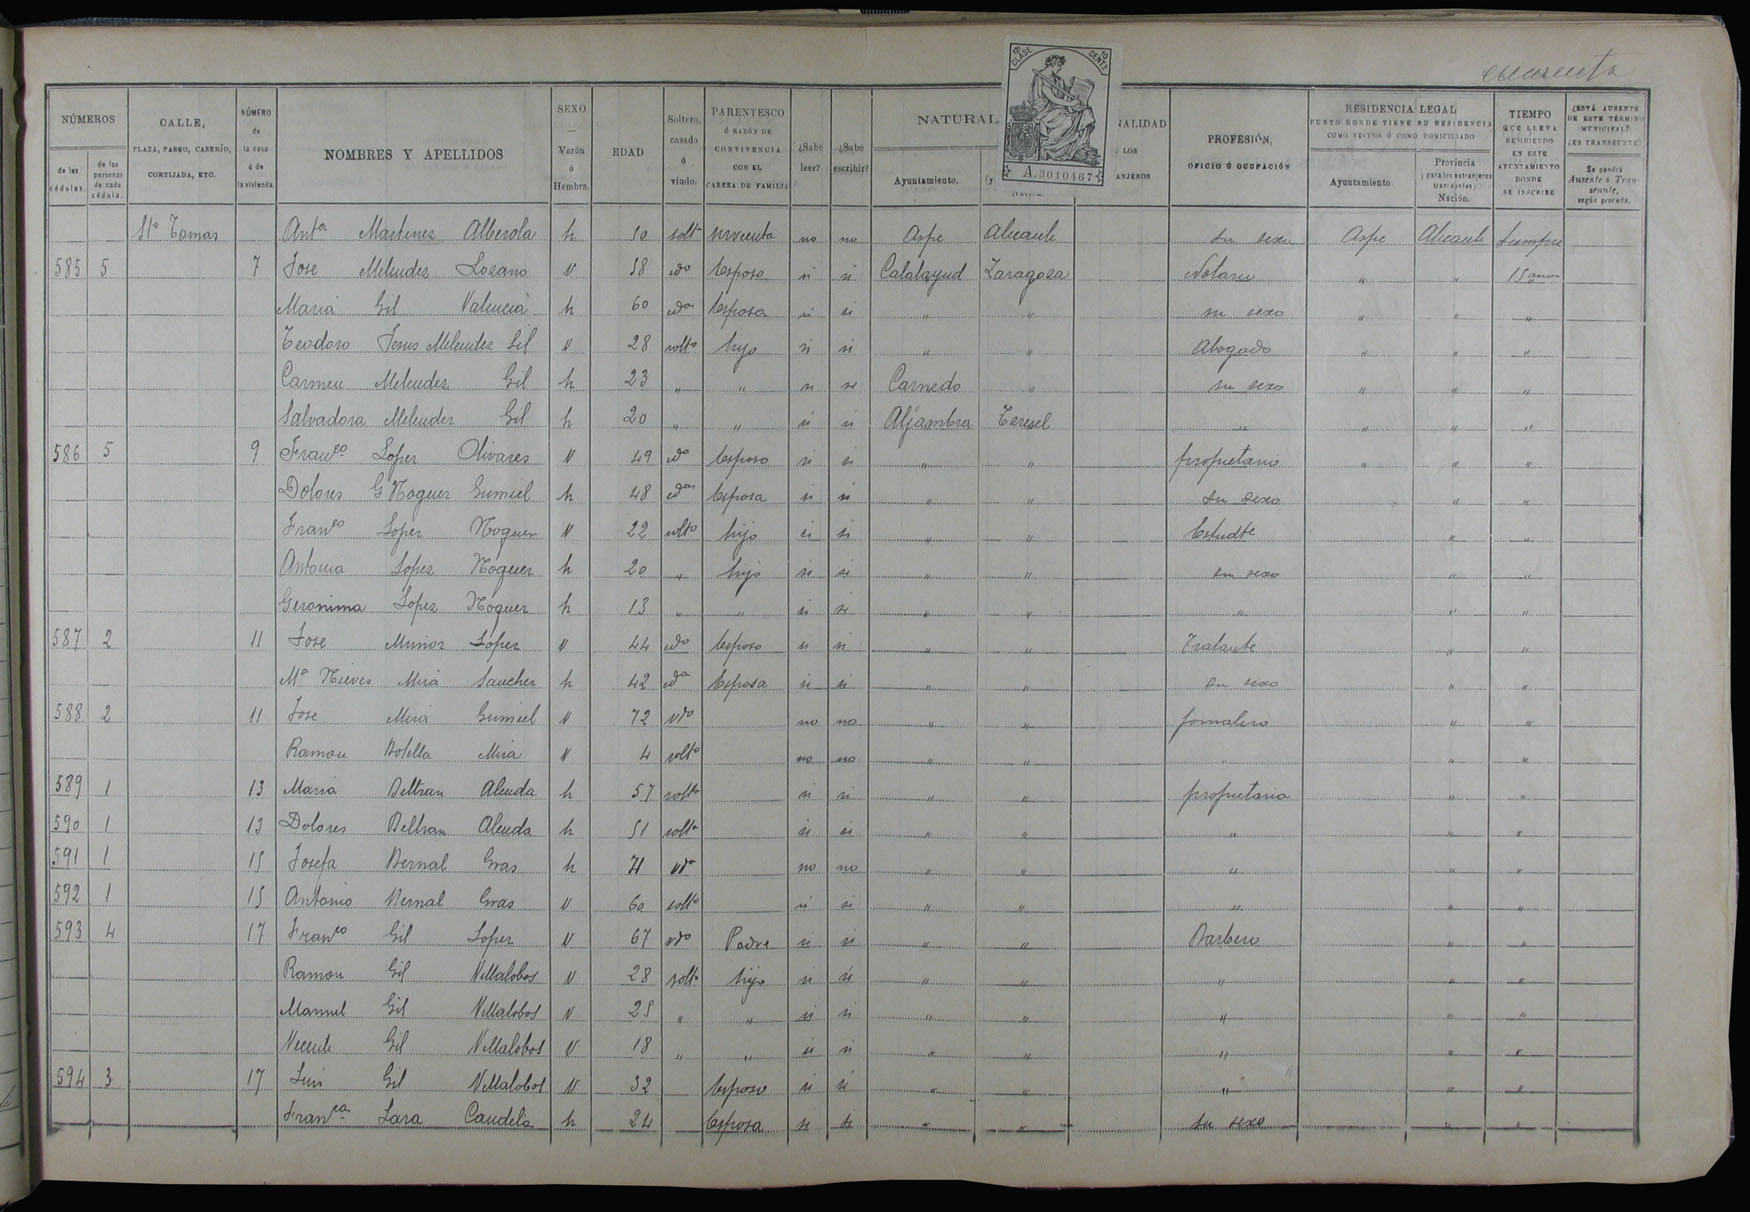 cuarenta
8ª CLASE 10 CENTS
A.3010467
NÚMEROS
de las cédulas.
de las personas de cada cédula.
CALLE,
PLAZA, PASEO, CASERÍO,
CORTIJADA, ETC.
NÚMERO
de
la casa
ó de
la vivienda.
NOMBRES Y APELLIDOS
SEXO
Varón
ó
Hembra.
EDAD
Soltero,
casado
ó
viudo.
PARENTESCO
Ó RAZÓN DE
CONVIVENCIA
CON EL
CABEZA DE FAMILIA
¿Sabe leer?
¿Sabe escribir?
NATURAL
Ayuntamiento.
NALIDAD
LOS
ANJEROS
PROFESIÓN,
OFICIO Ó OCUPACIÓN
RESIDENCIA LEGAL
PUNTO DONDE TIENE SU RESIDENCIA
COMO VECINO Ó COMO DOMICILIADO
Ayuntamiento
Provincia
(y para los extranjeros
transeuntes)
Nación.
TIEMPO
QUE LLEVA
RESIDIENDO
EN ESTE
AYUNTAMIENTO
DONDE
SE INSCRIBE
¿ESTÁ AUSENTE
DE ESTE TÉRMINO
MUNICIPAL?
¿ES TRANSEUNTE?
Se pondrá
Ausente ó Tran-
seunte,
según proceda.
Sto Tomas Anta Martinez Alberola h 50 solta sirvienta no no Aspe Alicante su sexo Aspe Alicante Siempre
585 5 7 Jose Melendez Lozano V 58 cdo Esposo si si Calatayud Zaragoza Notario " " 15 años
Maria Gil Valencia h 60 cda Esposa si si " " su sexo " " "
Teodoro Jesus Melendez Gil V 28 solto hijo si si " " Abogado " " "
Carmen Melendez Gil h 23 " " si si Carnedo " su sexo " " "
Salvadora Melendez Gil h 20 " " si si Aljambra Teruel " " " "
586 5 9 Franco Lopez Olivares V 49 cdo Esposo si si " " propietario " " "
Dolores G Noguer Gumiel h 48 cda Esposa si si " " su sexo " "
Franco Lopez Noguer V 22 solto hijo si si " " Estudte " "
Antonia Lopez Noguer h 20 " hija si si " " su sexo " "
Geronima Lopez Noguer h 13 " " si si " " " " "
587 2 11 Jose Muñoz López V 44 cdo Esposo si si " " Tratante " "
Ma Nieves Mira Sanchez h 42 cda Esposa si si " " su sexo " "
588 2 11 Jose Mira Gumiel V 72 vdo no no " " jornalero " "
Ramon Botella Mira V 4 solto no no " " " " "
589 1 13 Maria Beltran Alenda h 57 solta si si " " propietaria " "
590 1 13 Dolores Beltran Alenda h 51 solta si si " " " " "
591 1 15 Josefa Bernal Gras h 71 vda no no " " " " "
592 1 15 Antonio Bernal Gras V 60 solto si si " " " " "
593 4 17 Franco Gil Lopez V 67 vdo Padre si si " " Barbero " "
Ramon Gil Villalobos V 28 solto hijo si si " " " " "
Manuel Gil Villalobos V 25 " " si si " " " " "
Vicente Gil Villalobos V 18 " " si si " " " " "
594 3 17 Luis Gil Villalobos V 32 Esposo si si " " " " "
Franca Lara Candela h 24 Esposa si si " " su sexo " "